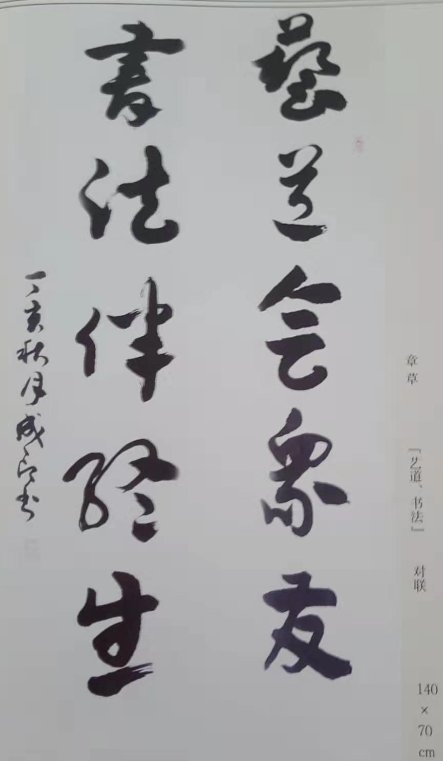 藝道会衆友
書法伴終生
丁亥秋月成江书
章草 「艺道、书法」 对联 140×70cm